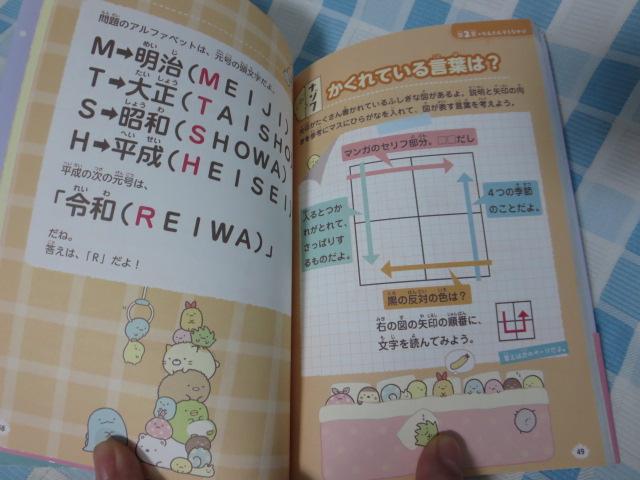 問題のアルファベットは、元号の頭文字だよ。
M→明治(MEIJI)
T→大正(TAISHO
S→昭和(SHOWA)
H→平成(HEISEI)
平成の次の元号は、
「令和(REIWA)」
だね。
答えは、「R」だよ！
かくれている言葉は？
がたくさん書かれているふしぎな図があるよ。説明と矢印の向
を参考にマスにひらがなを入れて、図が表す言葉を考えよう。
マンガのセリフ部分。□□だし
入るとつか
れがとれて、
さっぱりす
るものだよ。
4つの季節
のことだよ。
黒の反対の色は？
右の図の矢印の順番に、
文字を読んでみよう。
答えは次のページだよ。
49